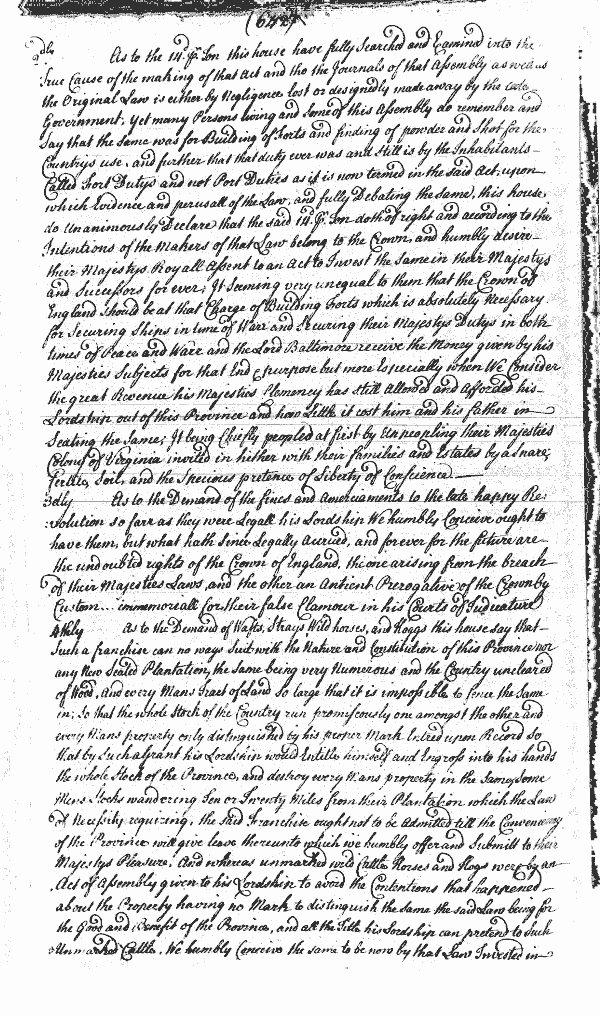 2dly As to the 14d. P. Ton this house have fully Searched and Examind into the
True Cause of the making of that Act and tho the Journals of that Assembly as well as
the Original Law is either by Negligence lost or designedly made away by the late
Government, yet many Persons living and some of this Assembly do remember and
Say that the same was for Building of Forts and finding of powder and Shot for the
Countrys use, and further that that duty ever was and still is by the Inhabitants
Called Fort Dutys and not Port Duties as it is now termed in the said Act, upon
which Evidence and perusall of the Law, and fully Debating the same, this house
do Unanimously Declare that the said 14d. P. Ton doth of right and according to the
Intentions of the Makers of that Law belong to the Crown, and humbly desire
their Majestys Royall Assent to an Act to Invest the same in their Majestys
and Successors for ever; It seeming very unequal to them that the Crown of
England should be at that Charge of Building Forts which is absolutely Necessary
for Securing Ships in time of Warr and Securing their Majestys Dutys in both
times of Peace and Warr and the Lord Baltimore receive the Money given by his
Majesties Subjects for that End & purpose but more Especially when We Consider
the great Revenue his Majesties Clemency has still Allowed and Afforded his
Lordship out of this Province and how little it cost him and his father in
Seating the Same; It being Chiefly peopled at first by Unpeopling their Majesties
Colony of Virginia invited in hither with their families and Estates by a Snare,
fertile Soil, and the Specious pretence of Liberty of Conscience
3dly As to the Demand of the fines and Amerciaments to the late happy Re:
:volution so farr as they were Legall his Lordship We humbly Conceive ought to
have them, but what hath since Legally Accrued, and forever for the future are
the undoubted rights of the Crown of England, the one arising from the breach
of their Majesties Laws, and the other an Antient Prerogative of the Crown by
Custom... immemoriall for their false Clamour in his Courts of Judicature
4thly As to the Demand of Wafts, Strays Wild horses, and Hoggs this house say that
Such a franchise can no ways Suit with the Nature and Constitution of this Province nor
any New Seated Plantation, the same being very Numerous and the Country uncleared
of Wood, And every Mans Tract of Land so large that it is impossible to fence the Same
in; So that the whole Stock of the Country run promiscously one amongst the other and
every Mans property only distinguished by his proper Mark Entred upon Record So
that by Such a Grant his Lordship would Entitle himself and Engross into his hands
the whole Stock of the Province, and destroy every Mans property in the Same, some
Mens Stocks wandering Ten or Twenty Miles from their Plantation which the Law
of Necessity requiring, the said Franchise ought not to be Admitted till the Conveniency
of the Province will give leave thereunto which we humbly offer and Submitt to their
Majestys Pleasure; And whereas unmarked wild Cattle Horses and Hogs were by an
Act of Assembly given to his Lordship to avoid the Contentions that happened
about the Property having no Mark to distinguish the same the said Law being for
the Good and Benefit of the Province, and all the Title his Lordship can pretend to such
Unmarked Cattle. We humbly Conceive the same to be now by that Law Invested in